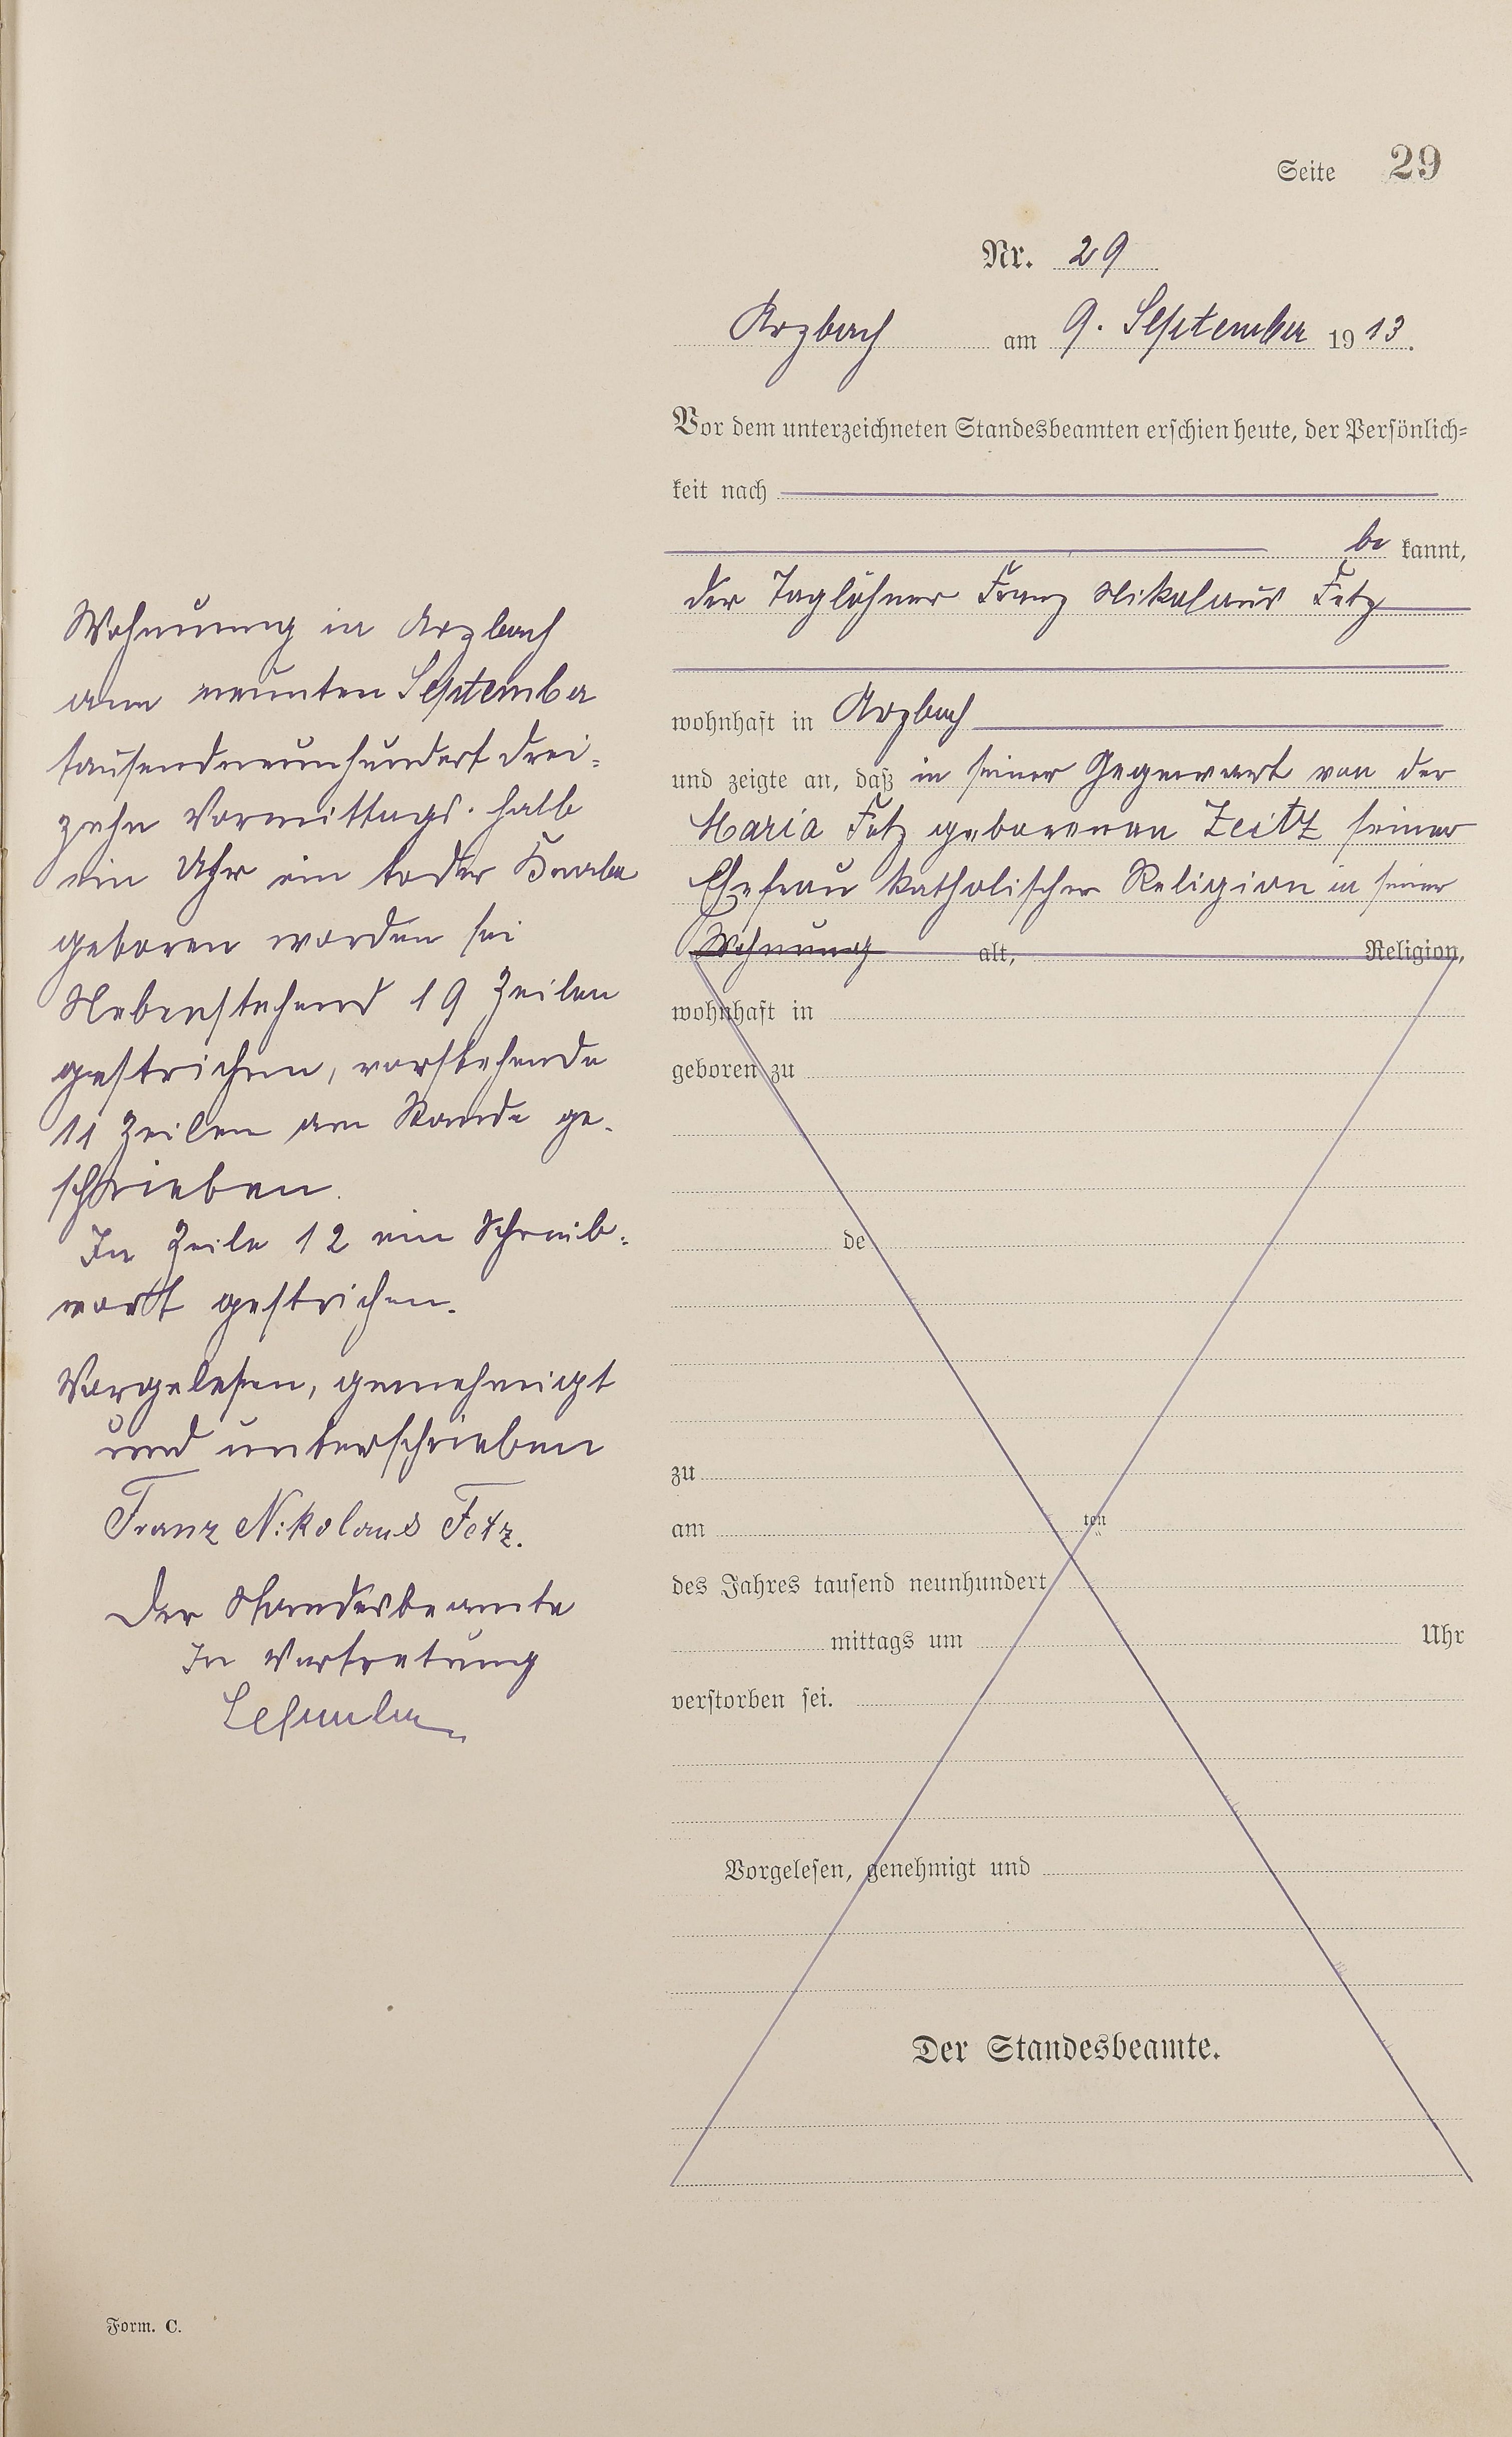 Seite 29
Nr. 29
Arzbach am 9. September 1913.
Vor dem unterzeichneten Standesbeamten erschien heute, der Persönlich-
keit nach
be kannt,
der Taglöhner Franz Nikolaus Fetz
wohnhaft in Arzbach
und zeigte an, daß in seiner Gegenwart von der
Maria Fetz geborenen Zeitz seiner
Ehefrau katholischer Religion in seiner
Wohnung alt, Religion,
wohnhaft in
geboren zu
de
zu
am ten
des Jahres tausend neunhundert
mittags um Uhr
verstorben sei.
Vorgelesen, genehmigt und
Der Standesbeamte.
Wohnung in Arzbach
am neunten September
tausendneunhundert drei-
zehn Vormittags halb
ein Uhr ein toder Knabe
geboren worden sei
Nebenstehend 19 Zeilen
gestrichen, vorstehende
11 Zeilen am Rande ge-
schrieben.
In Zeile 12 ein Schreib-
wort gestrichen.
Vorgelesen, genehmigt
und unterschrieben
Franz Nikolaus Fetz.
Der Standesbeamte
In Vertretung
Form. C.